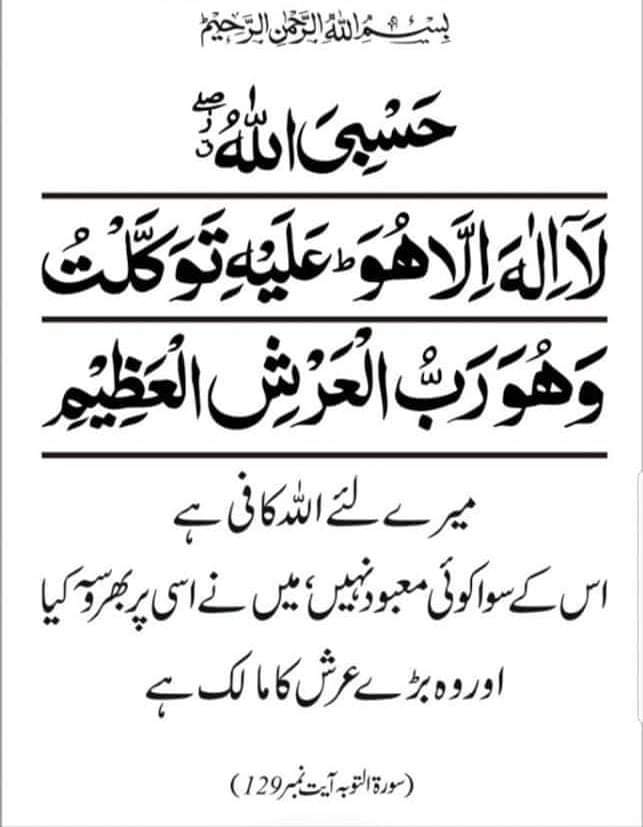 بِسْمِ اللهِ الرَّحْمٰنِ الرَّحِيْمِ
حَسْبِىَ اللهُ ۖ
لَآ اِلٰهَ اِلَّا هُوَ ؕ عَلَيْهِ تَوَكَّلْتُ
وَهُوَ رَبُّ الْعَرْشِ الْعَظِيْمِ
میرے لئے اللہ کافی ہے
اس کے سوا کوئی معبود نہیں، میں نے اسی پر بھروسہ کیا
اور وہ بڑے عرش کا مالک ہے
(سورۃ التوبہ آیت نمبر 129)